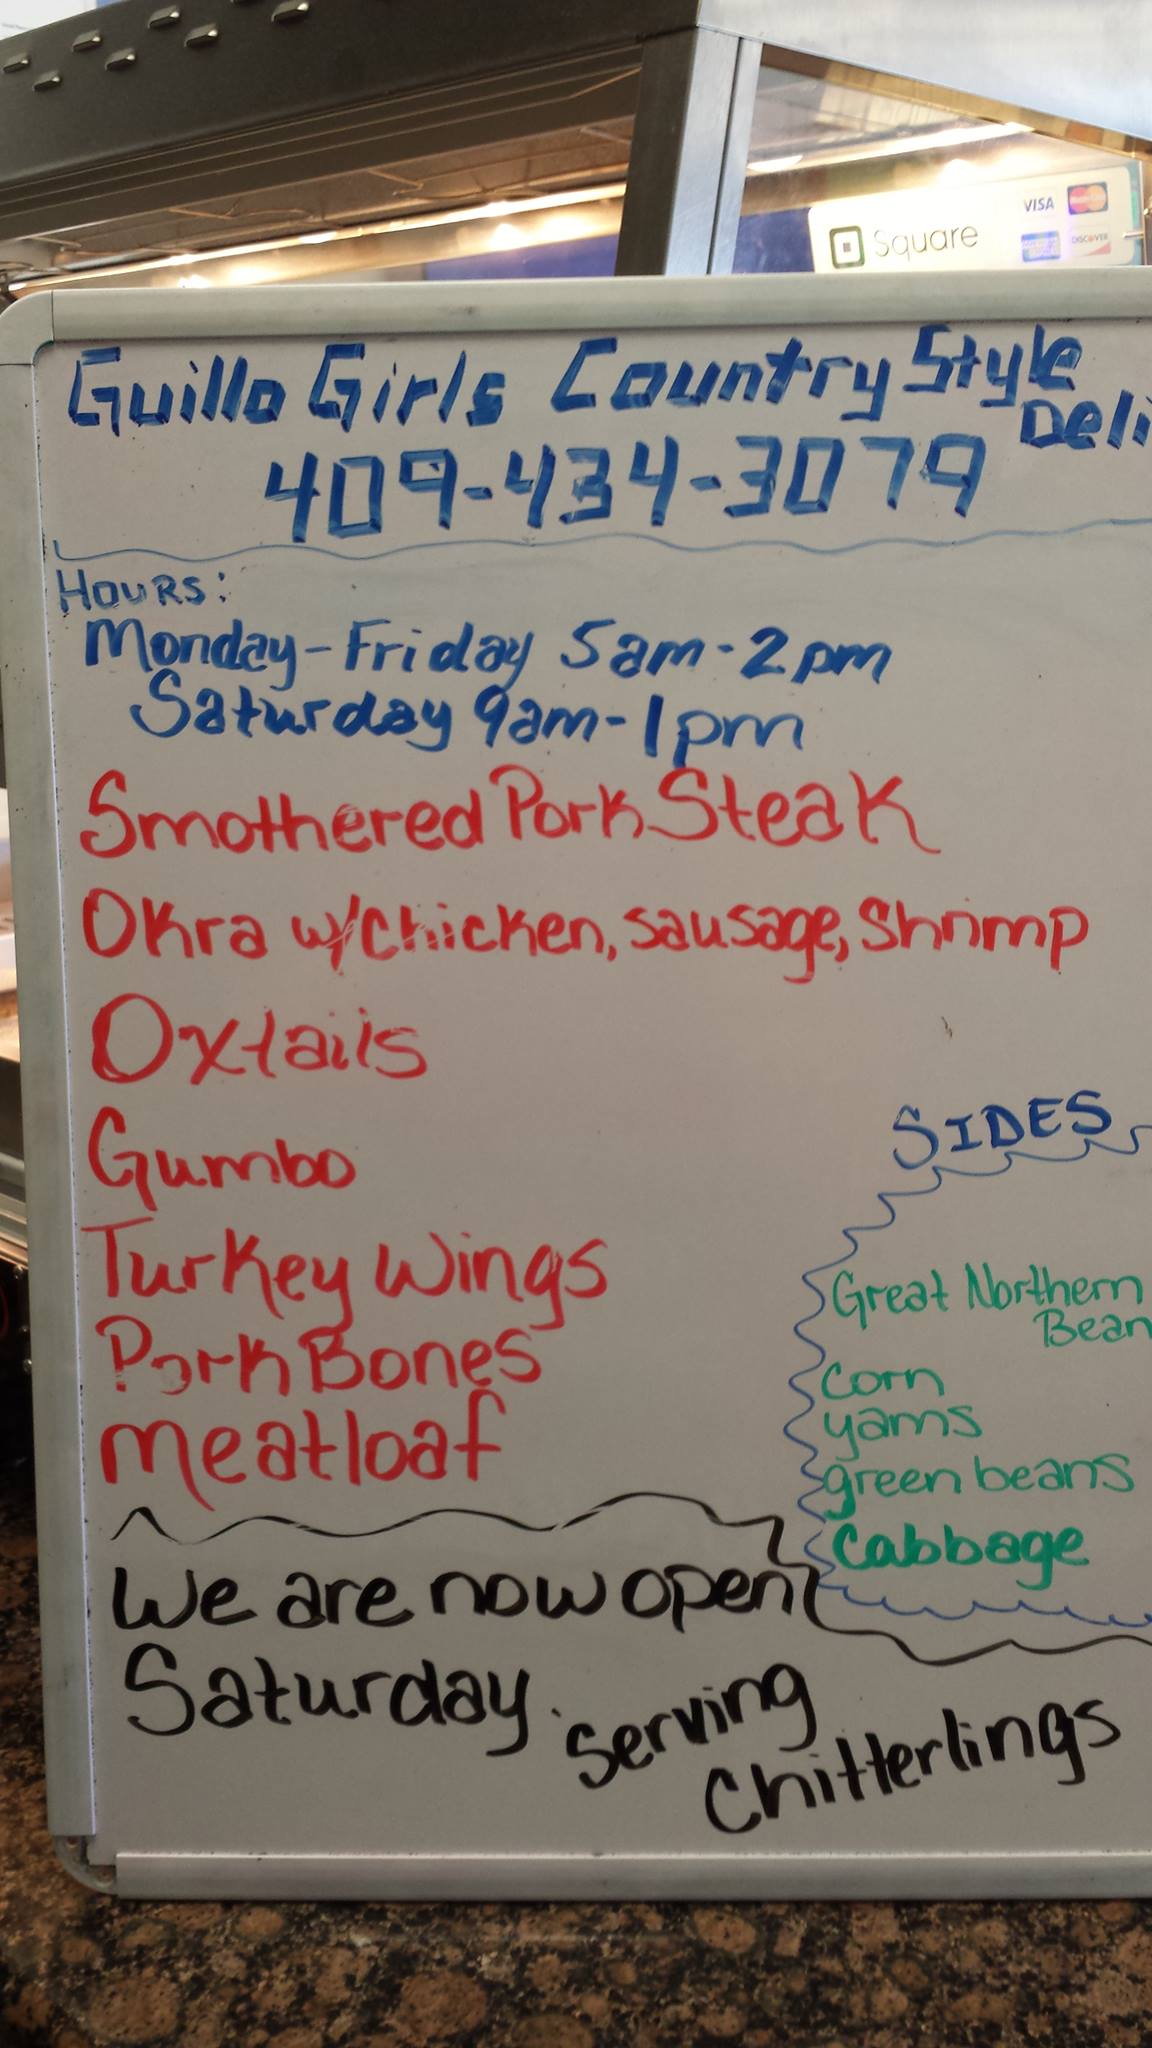 VISA
Square
DISCOVER
Guillo Girls Country Style
Deli
409-434-3079
HOURS:
Monday-Friday 5am-2pm
Saturday 9am-1pm
Smothered Pork Steak
Okra w/chicken, sausage, Shrimp
Oxtails
Gumbo
Turkey Wings
Pork Bones
meatloaf
SIDES
Great Northern
Bean
corn
yams
green beans
Cabbage
We are now open
Saturday. Serving
Chitterlings